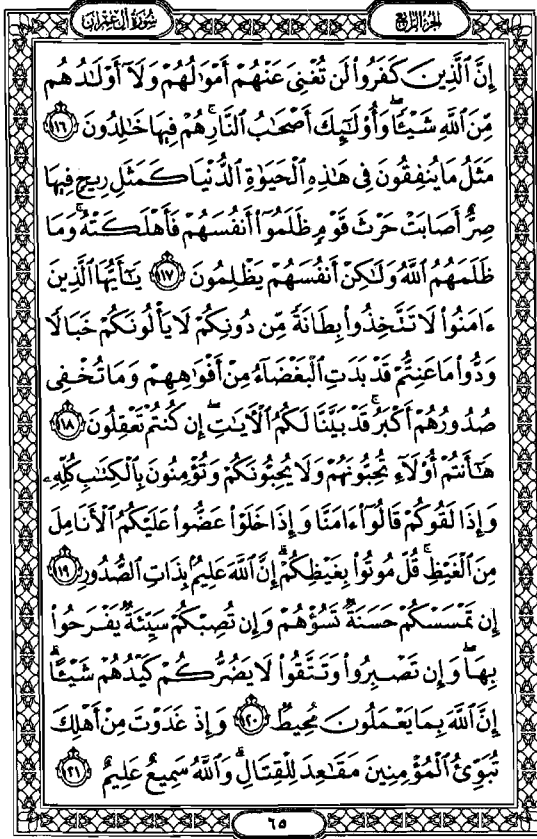 الجزء الرابع
سورة آل عمران
إِنَّ الَّذِينَ كَفَرُوا لَن تُغْنِيَ عَنْهُمْ أَمْوَٰلُهُمْ وَلَآ أَوْلَٰدُهُم
مِّنَ اللَّهِ شَيْـًٔا ۖ وَأُو۟لَٰٓئِكَ أَصْحَٰبُ النَّارِ ۚ هُمْ فِيهَا خَٰلِدُونَ ١١٦
مَثَلُ مَا يُنفِقُونَ فِى هَٰذِهِ الْحَيَوٰةِ الدُّنْيَا كَمَثَلِ رِيحٍ فِيهَا
صِرٌّ أَصَابَتْ حَرْثَ قَوْمٍ ظَلَمُوٓا أَنفُسَهُمْ فَأَهْلَكَتْهُ ۚ وَمَا
ظَلَمَهُمُ اللَّهُ وَلَٰكِنْ أَنفُسَهُمْ يَظْلِمُونَ ١١٧ يَٰٓأَيُّهَا الَّذِينَ
ءَامَنُوا لَا تَتَّخِذُوا بِطَانَةً مِّن دُونِكُمْ لَا يَأْلُونَكُمْ خَبَالًا
وَدُّوا مَا عَنِتُّمْ قَدْ بَدَتِ الْبَغْضَآءُ مِنْ أَفْوَٰهِهِمْ وَمَا تُخْفِى
صُدُورُهُمْ أَكْبَرُ ۚ قَدْ بَيَّنَّا لَكُمُ الْءَايَٰتِ ۖ إِن كُنتُمْ تَعْقِلُونَ ١١٨
هَٰٓأَنتُمْ أُو۟لَآءِ تُحِبُّونَهُمْ وَلَا يُحِبُّونَكُمْ وَتُؤْمِنُونَ بِالْكِتَٰبِ كُلِّهِۦ
وَإِذَا لَقُوكُمْ قَالُوٓا ءَامَنَّا وَإِذَا خَلَوْا عَضُّوا عَلَيْكُمُ الْأَنَامِلَ
مِنَ الْغَيْظِ ۚ قُلْ مُوتُوا بِغَيْظِكُمْ ۗ إِنَّ اللَّهَ عَلِيمٌۢ بِذَاتِ الصُّدُورِ ١١٩
إِن تَمْسَسْكُمْ حَسَنَةٌ تَسُؤْهُمْ وَإِن تُصِبْكُمْ سَيِّئَةٌ يَفْرَحُوا
بِهَا ۖ وَإِن تَصْبِرُوا وَتَتَّقُوا لَا يَضُرُّكُمْ كَيْدُهُمْ شَيْـًٔا ۗ
إِنَّ اللَّهَ بِمَا يَعْمَلُونَ مُحِيطٌ ١٢٠ وَإِذْ غَدَوْتَ مِنْ أَهْلِكَ
تُبَوِّئُ الْمُؤْمِنِينَ مَقَٰعِدَ لِلْقِتَالِ ۗ وَاللَّهُ سَمِيعٌ عَلِيمٌ ١٢١
٦٥